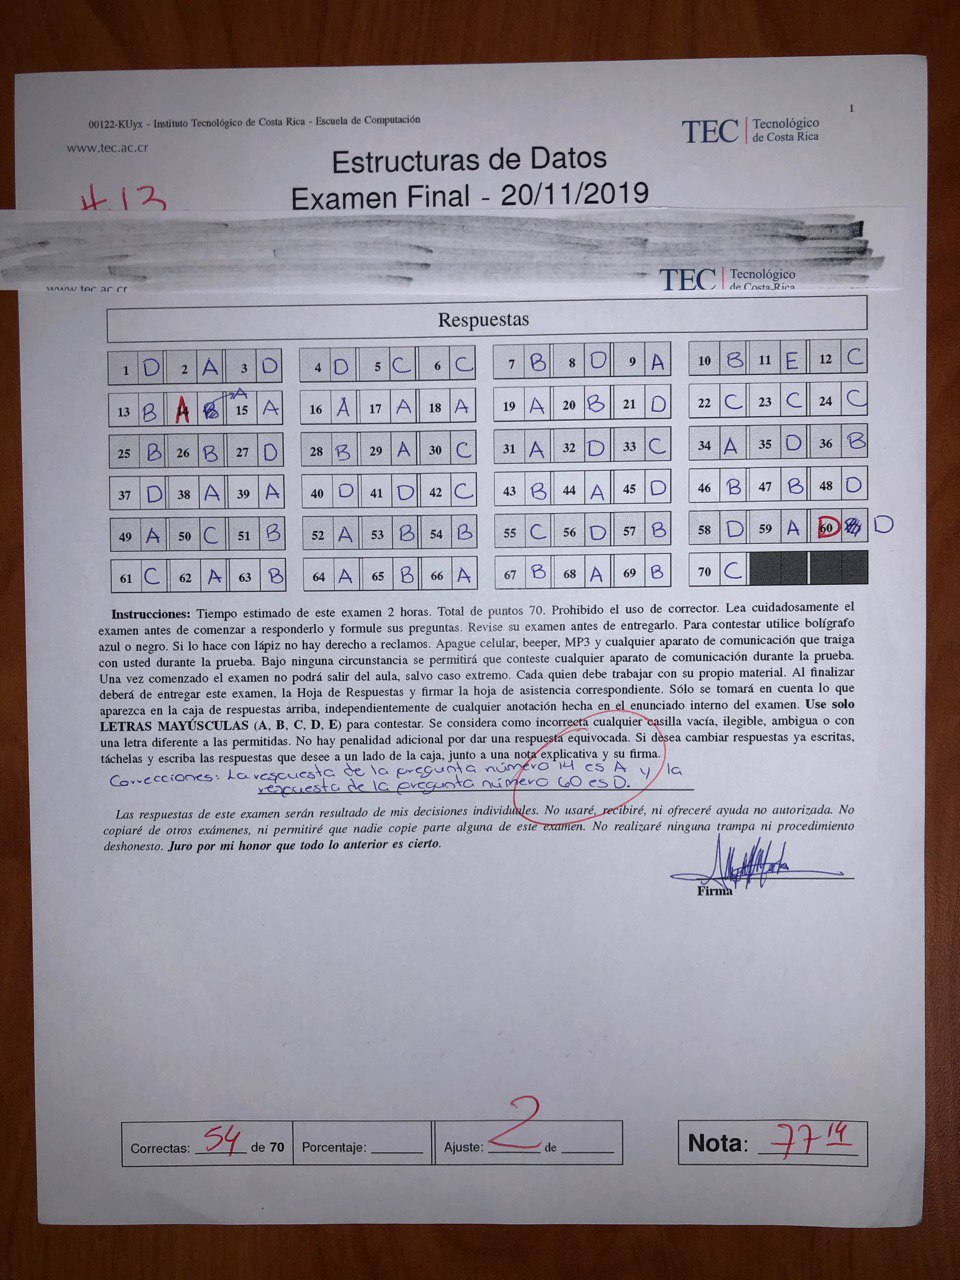 1
00122-KUyx - Instituto Tecnológico de Costa Rica - Escuela de Computación
www.tec.ac.cr
TEC | Tecnológico
de Costa Rica
Estructuras de Datos
Examen Final - 20/11/2019
4.13
TEC | Tecnológico
de Costa Rica
www.tec.ac.cr
Respuestas
1 D 2 A 3 D 4 D 5 C 6 C 7 B 8 D 9 A 10 B 11 E 12 C
13 B 14 A B A 15 A 16 A 17 A 18 A 19 A 20 B 21 D 22 C 23 C 24 C
25 B 26 B 27 D 28 B 29 A 30 C 31 A 32 D 33 C 34 A 35 D 36 B
37 D 38 A 39 A 40 D 41 D 42 C 43 B 44 A 45 D 46 B 47 B 48 D
49 A 50 C 51 B 52 A 53 B 54 B 55 C 56 D 57 B 58 D 59 A 60 D B D
61 C 62 A 63 B 64 A 65 B 66 A 67 B 68 A 69 B 70 C
Instrucciones: Tiempo estimado de este examen 2 horas. Total de puntos 70. Prohibido el uso de corrector. Lea cuidadosamente el
examen antes de comenzar a responderlo y formule sus preguntas. Revise su examen antes de entregarlo. Para contestar utilice bolígrafo
azul o negro. Si lo hace con lápiz no hay derecho a reclamos. Apague celular, beeper, MP3 y cualquier aparato de comunicación que traiga
con usted durante la prueba. Bajo ninguna circunstancia se permitirá que conteste cualquier aparato de comunicación durante la prueba.
Una vez comenzado el examen no podrá salir del aula, salvo caso extremo. Cada quien debe trabajar con su propio material. Al finalizar
deberá de entregar este examen, la Hoja de Respuestas y firmar la hoja de asistencia correspondiente. Sólo se tomará en cuenta lo que
aparezca en la caja de respuestas arriba, independientemente de cualquier anotación hecha en el enunciado interno del examen. Use solo
LETRAS MAYÚSCULAS (A, B, C, D, E) para contestar. Se considera como incorrecta cualquier casilla vacía, ilegible, ambigua o con
una letra diferente a las permitidas. No hay penalidad adicional por dar una respuesta equivocada. Si desea cambiar respuestas ya escritas,
táchelas y escriba las respuestas que desee a un lado de la caja, junto a una nota explicativa y su firma.
Correcciones: La respuesta de la pregunta número 14 es A y la
respuesta de la pregunta número 60 es D.
Las respuestas de este examen serán resultado de mis decisiones individuales. No usaré, recibiré, ni ofreceré ayuda no autorizada. No
copiaré de otros exámenes, ni permitiré que nadie copie parte alguna de este examen. No realizaré ninguna trampa ni procedimiento
deshonesto. Juro por mi honor que todo lo anterior es cierto.
Firma
Correctas: 54 de 70 Porcentaje: Ajuste: 2 de Nota: 77 14